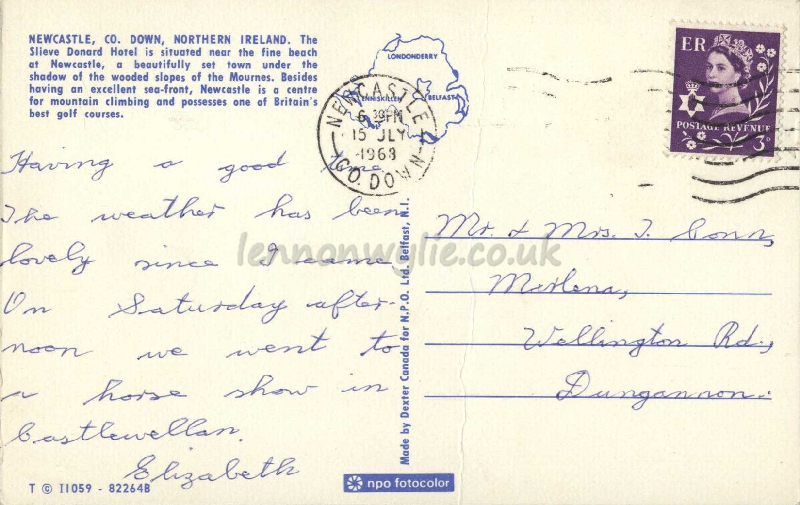 NEWCASTLE, CO. DOWN, NORTHERN IRELAND. The
Slieve Donard Hotel is situated near the fine beach
at Newcastle, a beautifully set town under the
shadow of the wooded slopes of the Mournes. Besides
having an excellent sea-front, Newcastle is a centre
for mountain climbing and possesses one of Britain's
best golf courses.
LONDONDERRY
ENNISKILLEN
BELFAST
NEWCASTLE
6 30PM
15 JLY
1968
CO. DOWN
ER
POSTAGE REVENUE
3D
Having a good time.
The weather has been
lovely since I came
On Saturday after-
noon we went to
a horse show in
Castlewellan.
Elizabeth
Mr. & Mrs. T. Conn,
Merlena,
Wellington Rd.,
Dungannon.
lennonwylie.co.uk
Made by Dexter Canada for N.P.O. Ltd. Belfast, N.I.
T © II059 - 82264B
npo fotocolor